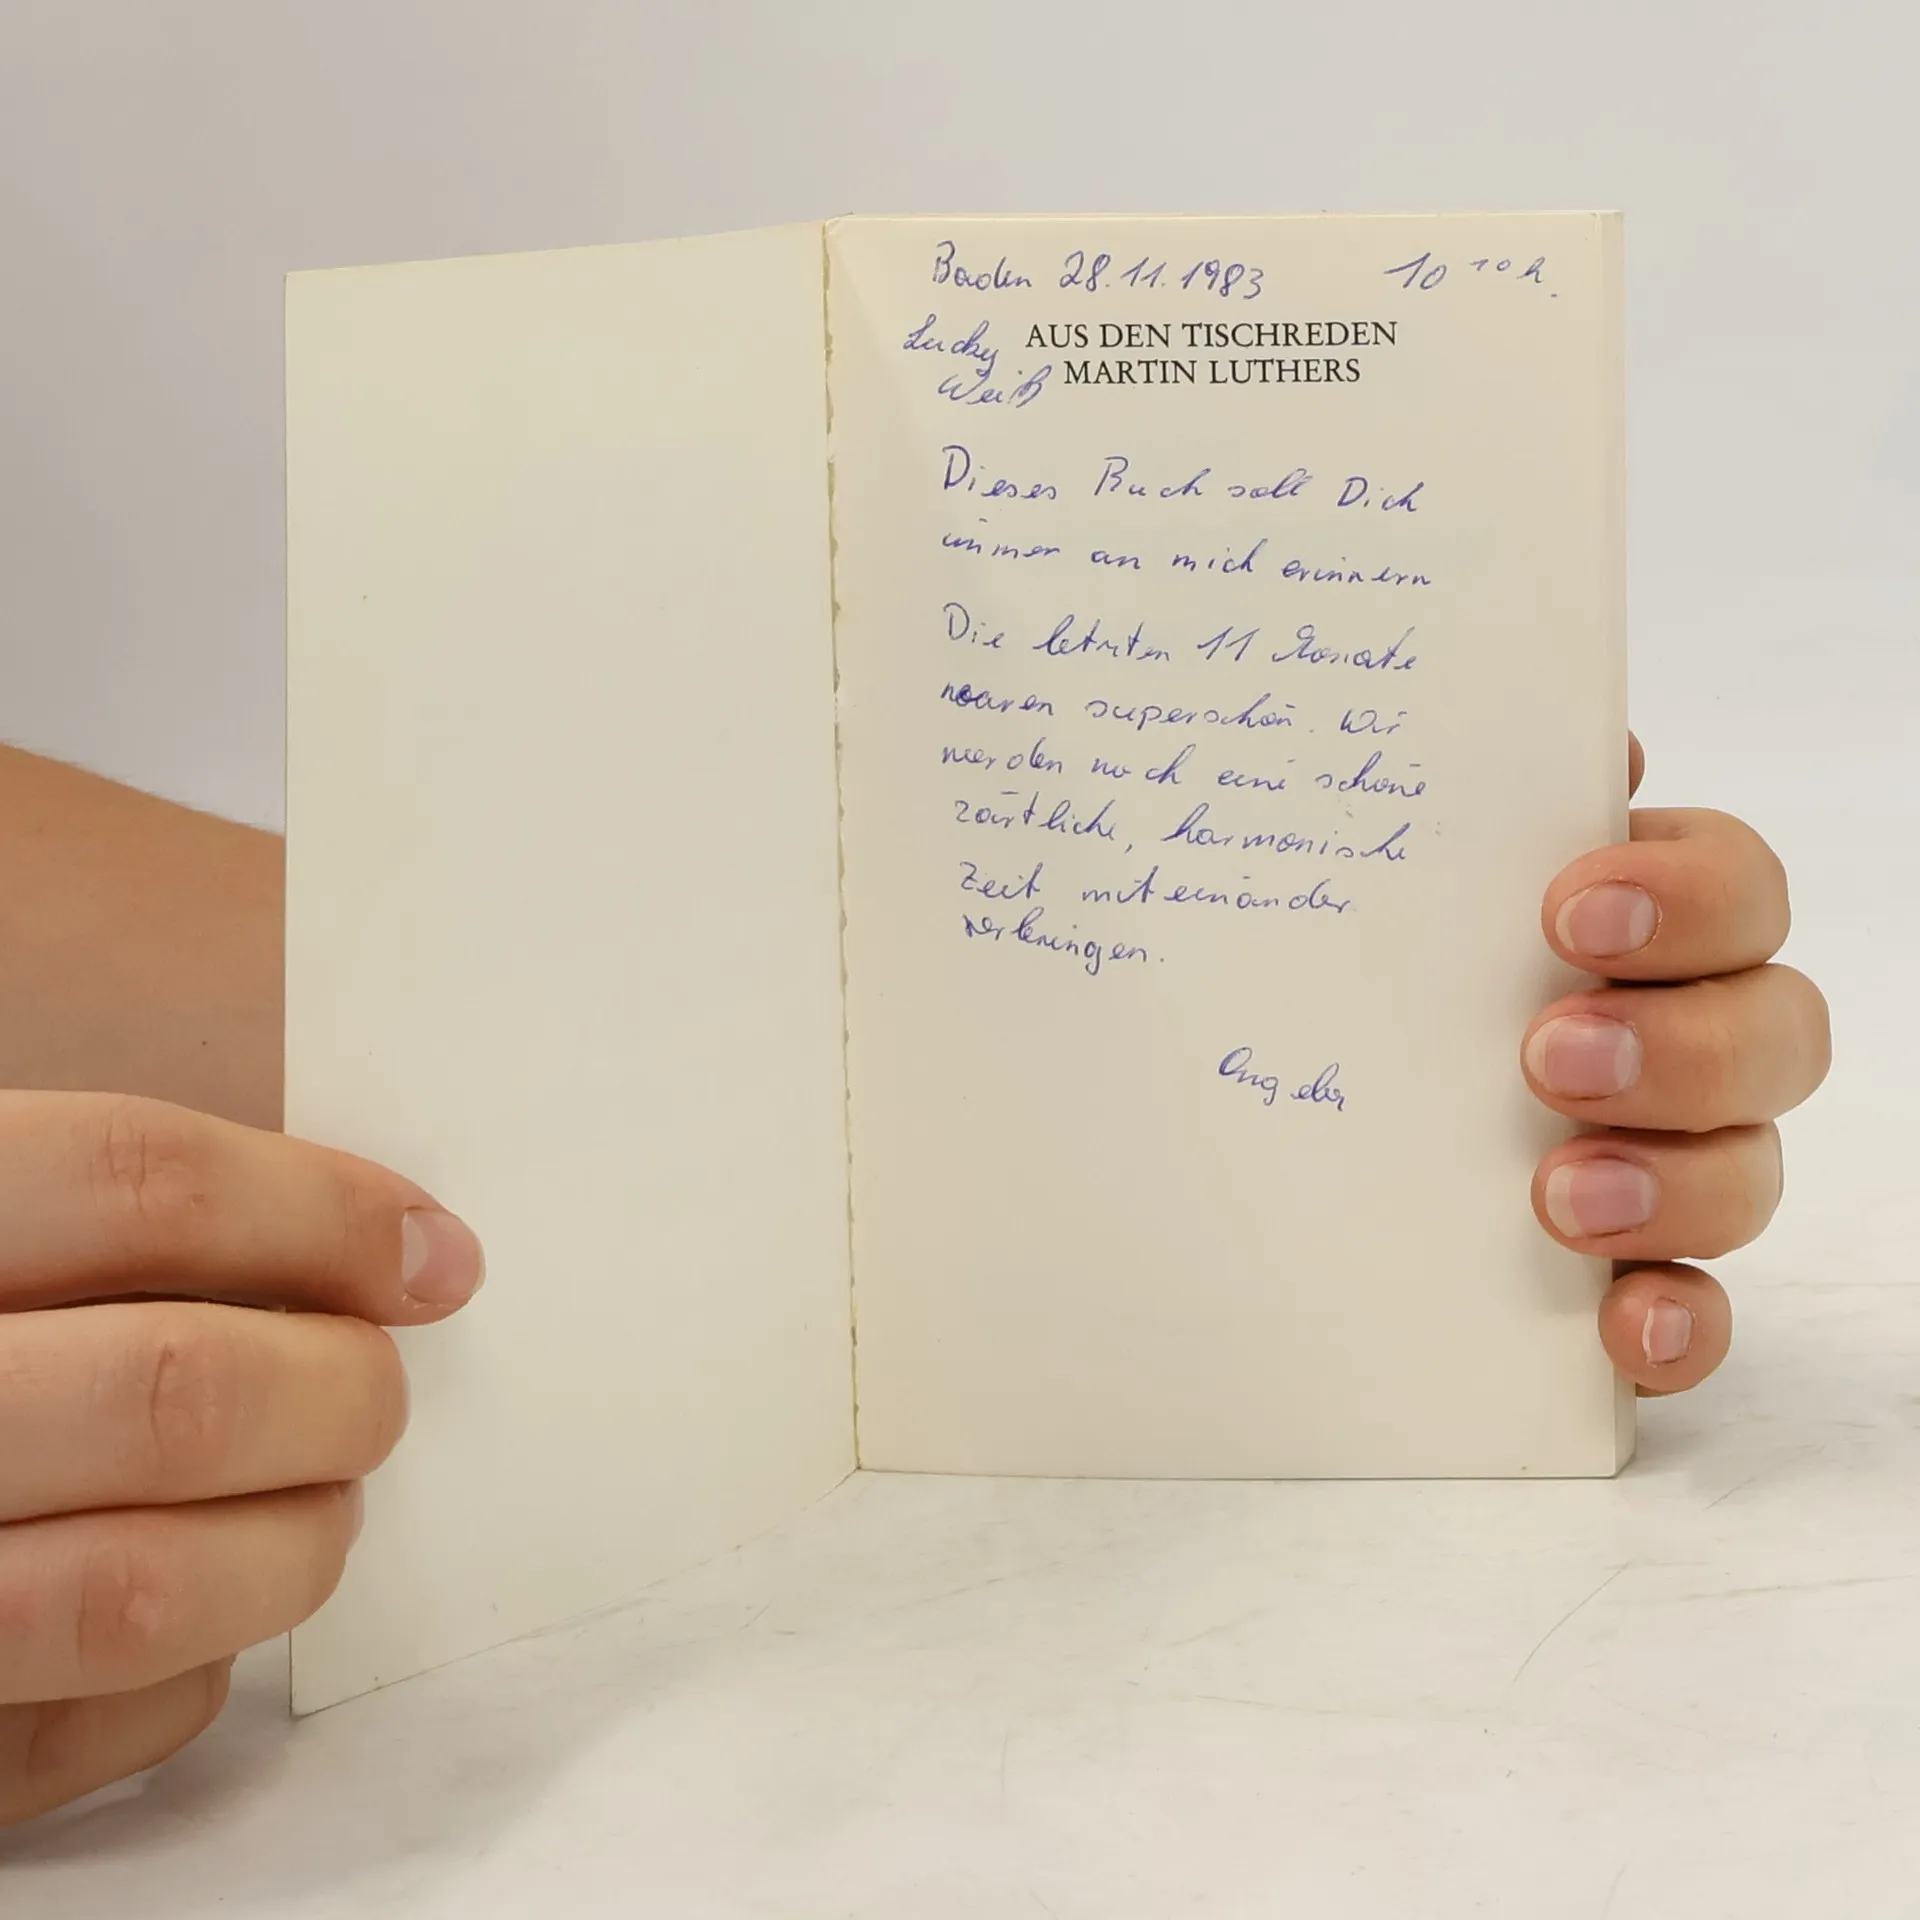 Baden 28.11.1983 10 10 h.
Lucky
Weiß
AUS DEN TISCHREDEN
MARTIN LUTHERS
Dieses Buch soll Dich
immer an mich erinnern
Die letzten 11 Monate
waren superschön. Wir
werden noch eine schöne
zärtliche, harmonische
Zeit miteinander
verbringen.
Angela